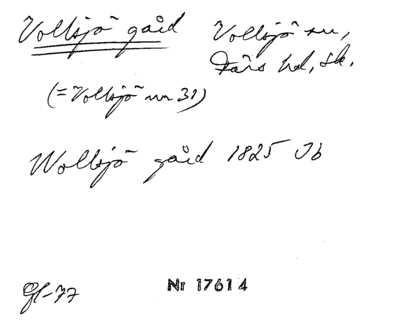 Vollsjö gård Vollsjö sn,
Färs hd, Sk.
(= Vollsjö nr 31)
Wollsjö gård 1825 Jb
Gf-77
Nr 17614